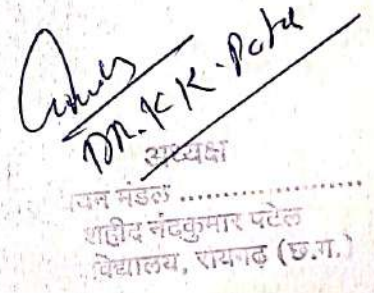 DR. K K. Patel
अध्यक्ष
मंडल ..................
शहीद नंदकुमार पटेल
विद्यालय, रायगढ़ (छ.ग.)